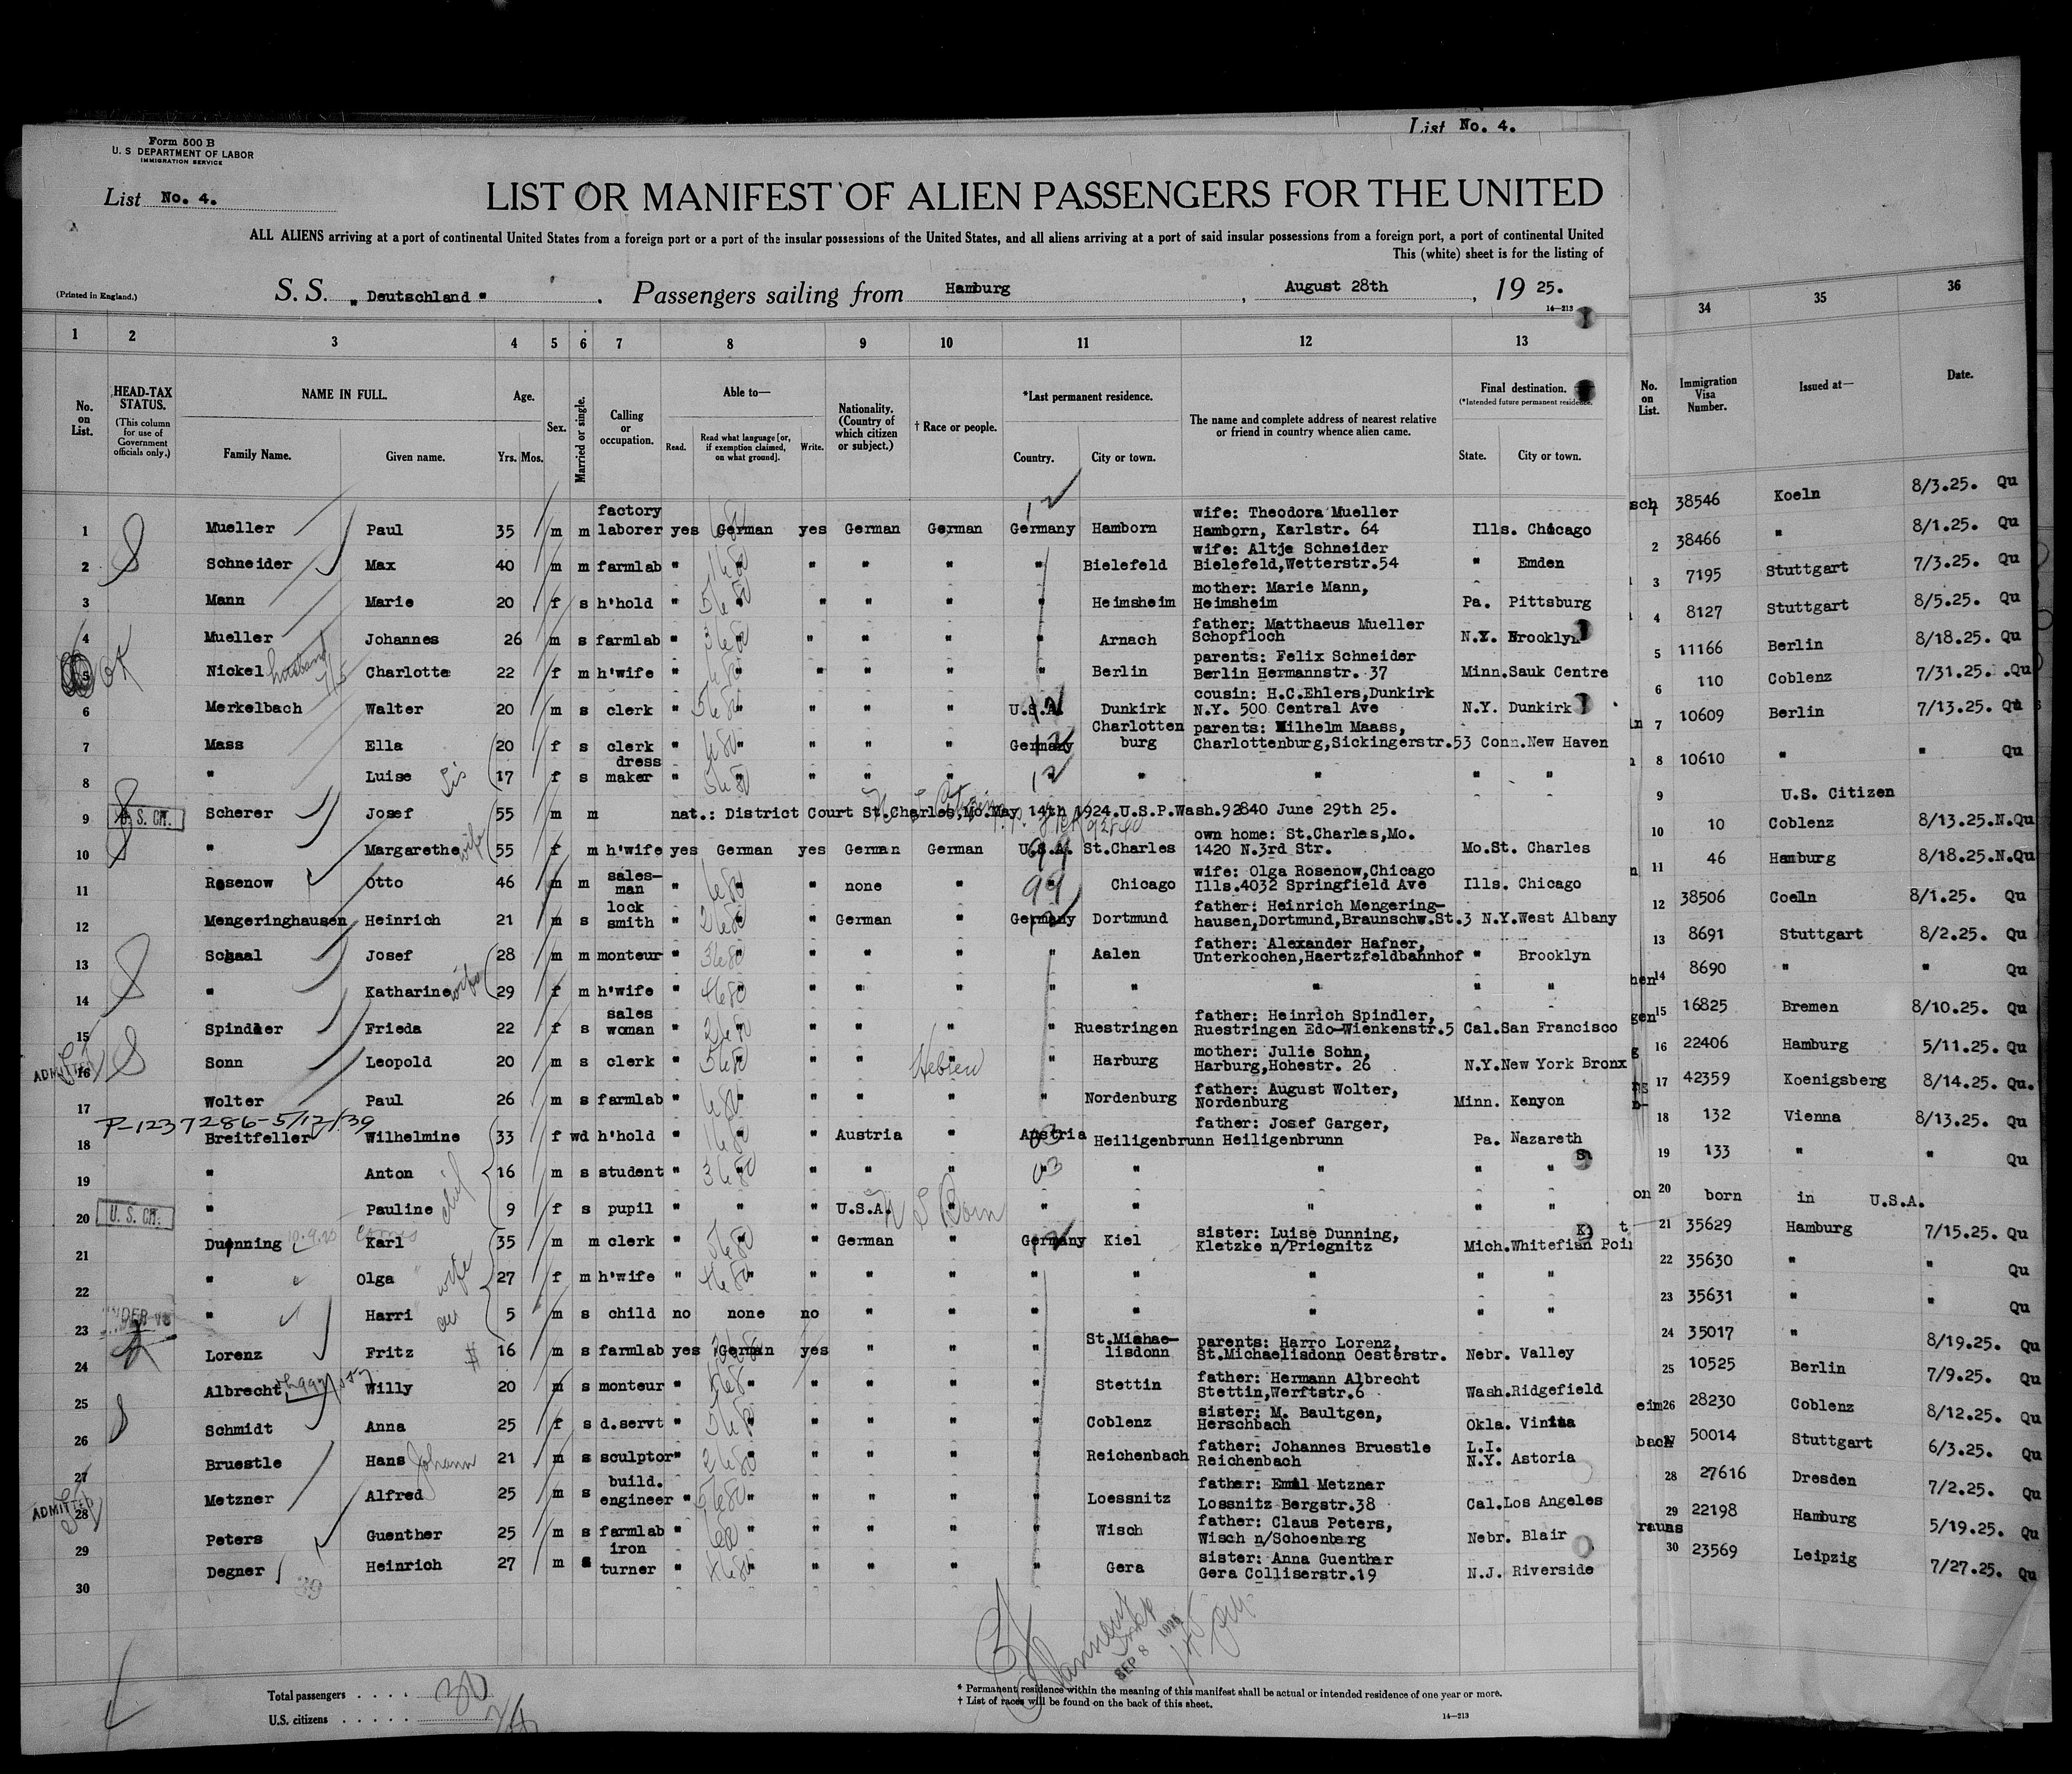 List No. 4.
Form 500 B
U. S DEPARTMENT OF LABOR
IMMIGRATION SERVICE
List No. 4.
LIST OR MANIFEST OF ALIEN PASSENGERS FOR THE UNITED
ALL ALIENS arriving at a port of continental United States from a foreign port or a port of the insular possessions of the United States, and all aliens arriving at a port of said insular possessions from a foreign port, a port of continental United
This (white) sheet is for the listing of
(Printed in England.)
S. S. „ Deutschland " . Passengers sailing from Hamburg , August 28th , 19 25.
14—213
1 2 3 4 5 6 7 8 9 10 11 12 13 34 35 36
No. on List.
HEAD-TAX STATUS.
(This column for use of Government officials only.)
NAME IN FULL.
Family Name. Given name.
Age.
Yrs. Mos.
Sex.
Married or single.
Calling or occupation.
Able to—
Read. Read what language [or, if exemption claimed, on what ground]. Write.
Nationality. (Country of which citizen or subject.)
† Race or people.
*Last permanent residence.
Country. City or town.
The name and complete address of nearest relative or friend in country whence alien came.
Final destination.
(*Intended future permanent residence.
State. City or town.
No. on List.
Immigration Visa Number.
Issued at—
Date.
1 Mueller Paul 35 m m factory laborer yes German yes German German Germany Hamborn wife: Theodora Mueller Hamborn, Karlstr. 64 Ills. Chicago sch 1 38546 Koeln 8/3.25. Qu
2 Schneider Max 40 m m farmlab " " " " " " Bielefeld wife: Altje Schneider Bielefeld,Wetterstr.54 " Emden 2 38466 " 8/1.25. Qu
3 Mann Marie 20 f s h'hold " " " " " " Heimsheim mother: Marie Mann, Heimsheim Pa. Pittsburg 3 7195 Stuttgart 7/3.25. Qu
4 Mueller Johannes 26 m s farmlab " " " " " " Arnach father: Matthaeus Mueller Schopfloch N.Y. Brooklyn 4 8127 Stuttgart 8/5.25. Qu
5 OK Nickel husband 7/15 Charlotte 22 f m h'wife " " " " " " Berlin parents: Felix Schneider Berlin Hermannstr. 37 Minn.Sauk Centre 5 11166 Berlin 8/18.25. Qu
6 Merkelbach Walter 20 m s clerk " " " " " U.S.A. Dunkirk cousin: H.C.Ehlers,Dunkirk N.Y. 500 Central Ave N.Y. Dunkirk 6 110 Coblenz 7/31.25. Qu
7 Mass Ella 20 f s clerk " " " " " Germany Charlotten burg parents: Wilhelm Maass, Charlottenburg,Sickingerstr.53 Conn.New Haven 7 10609 Berlin 7/13.25. Qu
8 " Luise Sis 17 f s dress maker " " " " " " " " " 8 10610 " " Qu
9 U. S. CIT. Scherer Josef 55 m m nat.: District Court St.Charles,Mo.May 14th 1924.U.S.P.Wash.92840 June 29th 25. 9 U.S. Citizen
10 " Margarethe wife 55 f m h'wife yes German yes German German U.S.A. St.Charles own home: St.Charles,Mo. 1420 N.3rd Str. Mo.St. Charles 10 10 Coblenz 8/13.25.N.Qu
11 Rosenow Otto 46 m m sales-man " " " none " 99 Chicago wife: Olga Rosenow,Chicago Ills.4032 Springfield Ave Ills. Chicago 11 46 Hamburg 8/18.25.N.Qu
12 Mengeringhausen Heinrich 21 m s lock smith " " " German " Germany Dortmund father: Heinrich Mengering-hausen,Dortmund,Braunschw.St.3 N.Y.West Albany 12 38506 Coeln 8/1.25. Qu
13 Schaal Josef 28 m m monteur " " " " " " Aalen father: Alexander Hafner, Unterkochen,Haertzfeldbahnhof " Brooklyn 13 8691 Stuttgart 8/2.25. Qu
14 " Katharine wife 29 f m h'wife " " " " " " " " " " hen 14 8690 " " Qu
15 Spindler Frieda 22 f s sales woman " " " " " " Ruestringen father: Heinrich Spindler, Ruestringen Edo-Wienkenstr.5 Cal.San Francisco gen 15 16825 Bremen 8/10.25. Qu
16 ADMITTED Sonn Leopold 20 m s clerk " " " " Hebrew " Harburg mother: Julie Sohn, Harburg,Hohestr. 26 N.Y.New York Bronx 16 22406 Hamburg 5/11.25. Qu
17 Wolter Paul 26 m s farmlab " " " " " " Nordenburg father: August Wolter, Nordenburg Minn. Kenyon 17 42359 Koenigsberg 8/14.25. Qu.
P-1237286-5/12/39
18 Breitfeller Wilhelmine 33 f wd h'hold " " " Austria " Austria Heiligenbrunn father: Josef Garger, Heiligenbrunn Pa. Nazareth 18 132 Vienna 8/13.25. Qu
19 " Anton 16 m s student " " " " " " " " " " 19 133 " " Qu
20 U. S. CIT. " Pauline 9 f s pupil " " " U.S.A. U S Born " " " " " " on 20 born in U.S.A.
21 Duenning Karl 35 m m clerk " " " German " Germany Kiel sister: Luise Dunning, Kletzke n/Priegnitz Mich.Whitefish Poi 21 35629 Hamburg 7/15.25. Qu
22 " Olga wife 27 f m h'wife " " " " " " " " " " 22 35630 " " Qu
23 UNDER 16 " Harri 5 m s child no none no " " " " " " " 23 35631 " " Qu
24 Lorenz Fritz 16 m s farmlab yes German yes " " " St.Michae-lisdonn parents: Harro Lorenz, St.Michaelisdonn Oesterstr. Nebr. Valley 24 35017 " 8/19.25. Qu
25 Albrecht Willy 20 m s monteur " " " " " " Stettin father: Hermann Albrecht Stettin,Werftstr.6 Wash.Ridgefield 25 10525 Berlin 7/9.25. Qu
26 Schmidt Anna 25 f s d.servt " " " " " " Coblenz sister: M. Baultgen, Herschbach Okla. Vinita eim 26 28230 Coblenz 8/12.25. Qu
27 Bruestle Hans Johann 21 m s sculptor " " " " " " Reichenbach father: Johannes Bruestle Reichenbach L.I. N.Y. Astoria bach 27 50014 Stuttgart 6/3.25. Qu
28 ADMITTED Metzner Alfred 25 m s build. engineer " " " " " " Loessnitz father: Emil Metzner Lossnitz Bergstr.38 Cal.Los Angeles 28 27616 Dresden 7/2.25. Qu
29 Peters Guenther 25 m s farmlab " " " " " " Wisch father: Claus Peters, Wisch n/Schoenberg Nebr. Blair 29 22198 Hamburg 5/19.25. Qu
30 Degner Heinrich 27 m s iron turner " " " " " " Gera sister: Anna Guenther Gera Colliserstr.19 N.J. Riverside rauns 30 23569 Leipzig 7/27.25. Qu
39
SEP 8 1925
Total passengers . . . . 30
U.S. citizens . . . . .
* Permanent residence within the meaning of this manifest shall be actual or intended residence of one year or more.
† List of races will be found on the back of this sheet.
14—213